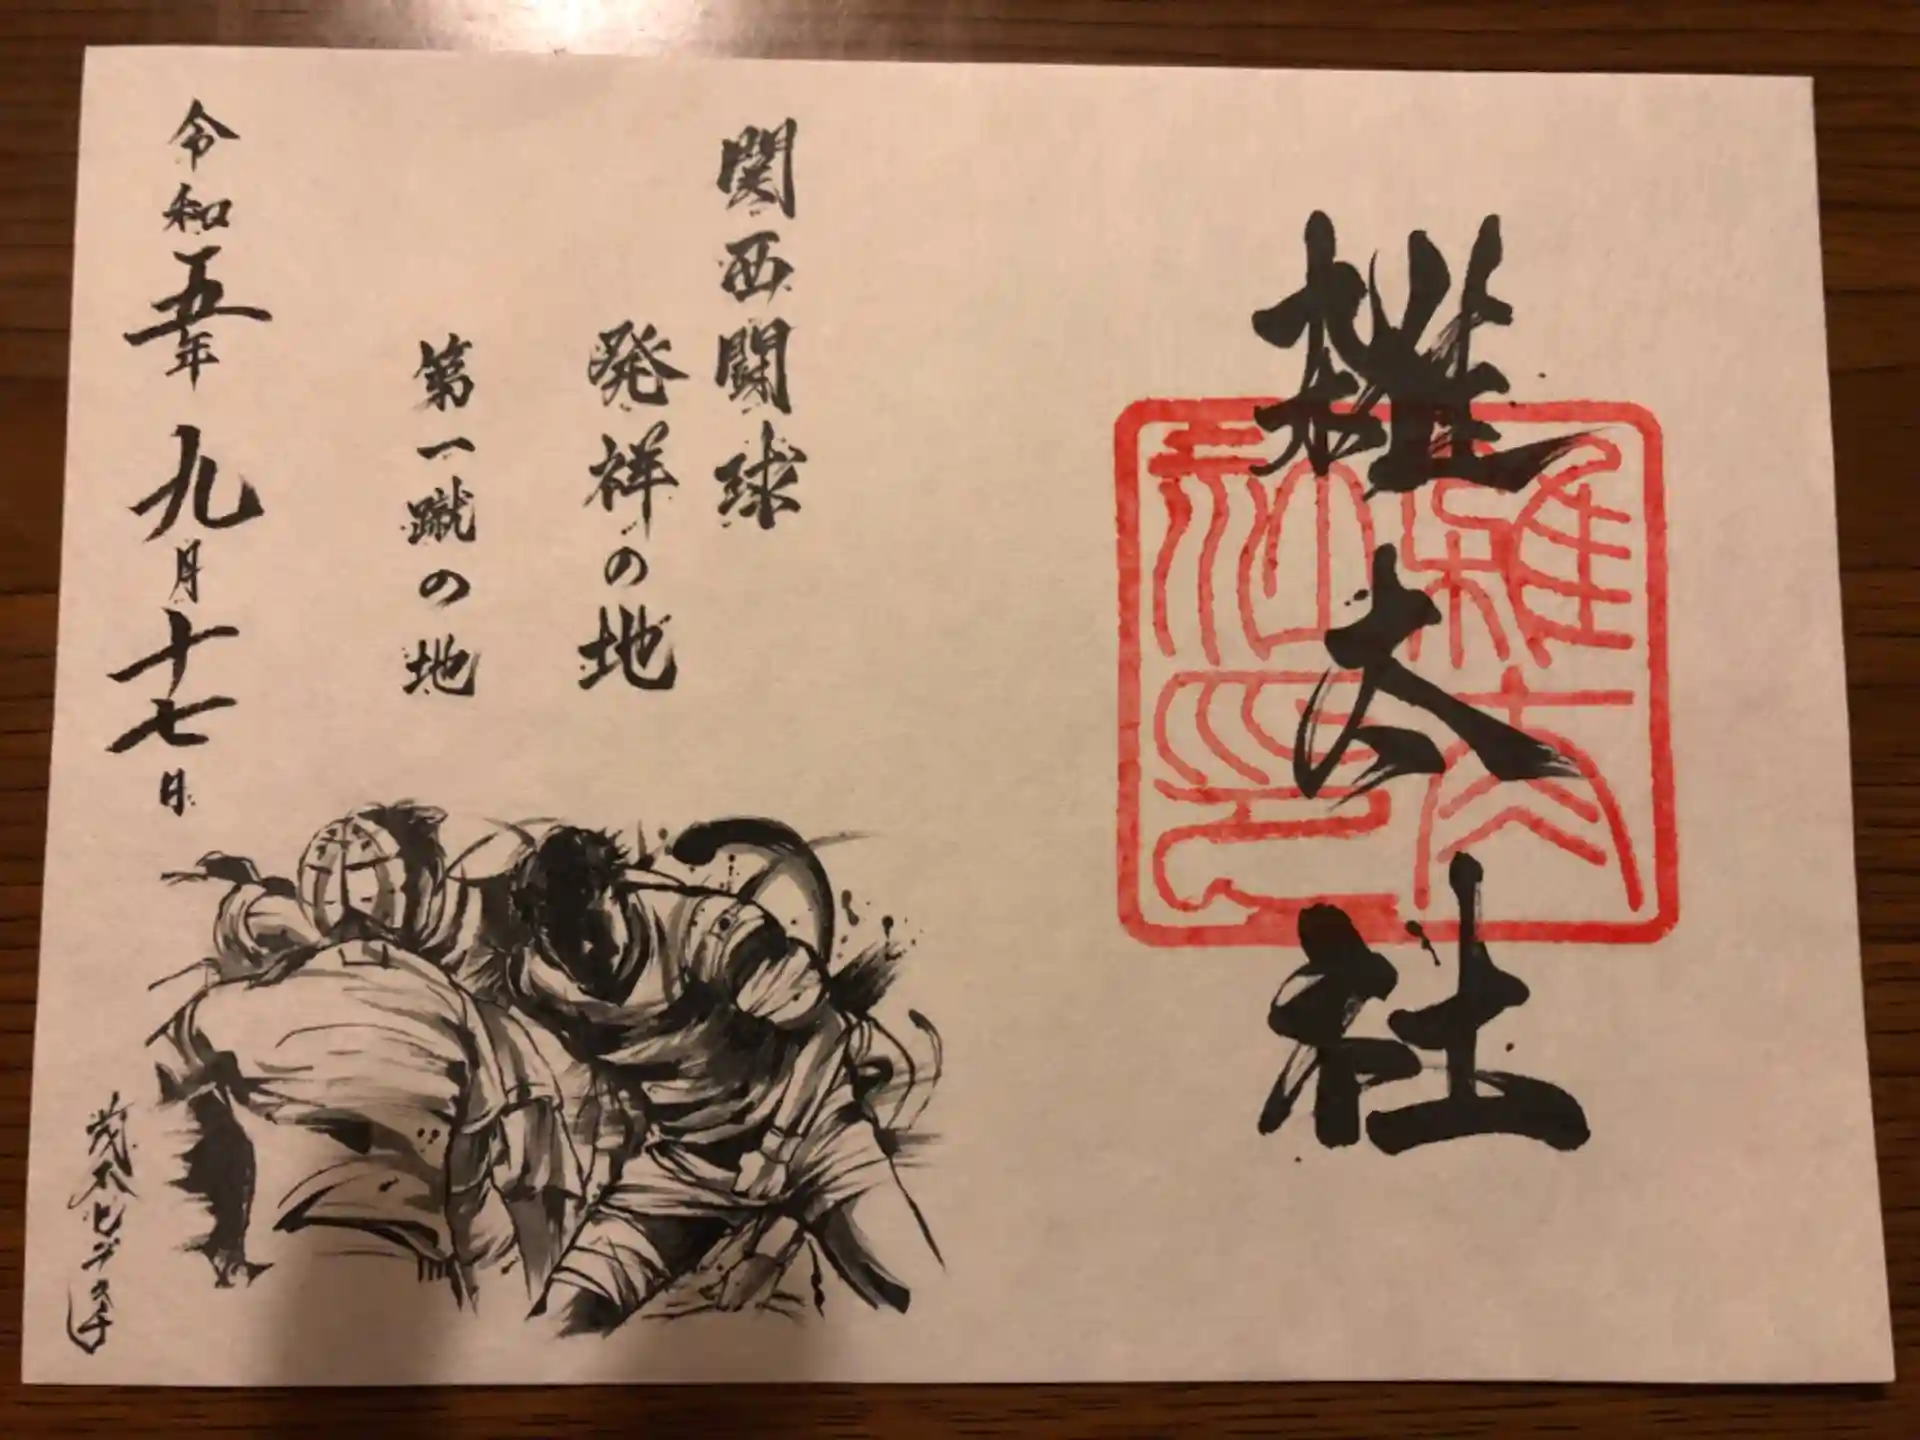 雑太社
雜太社印
関西闘球
発祥の地
第一蹴の地
令和五年 九月十七日
茂本ヒデキチ